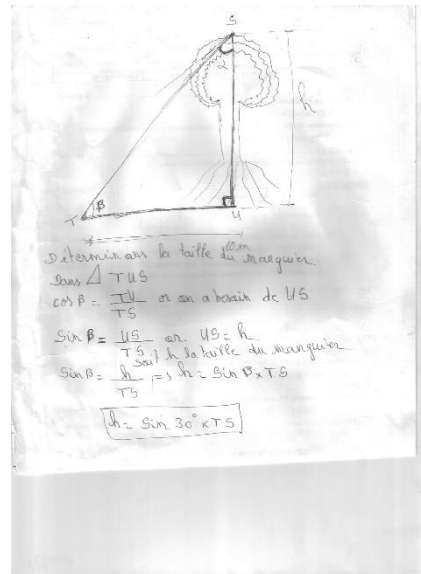 S
2
h
T
β
U
10m
Déterminons la taille du manguier
Dans △ TUS
cos β = TU / TS or on a besoin de US
Sin β = US / TS or US = h
Soit h la taille du manguier
Sin β = h / TS => h = Sin β x TS
h = Sin 30° x TS